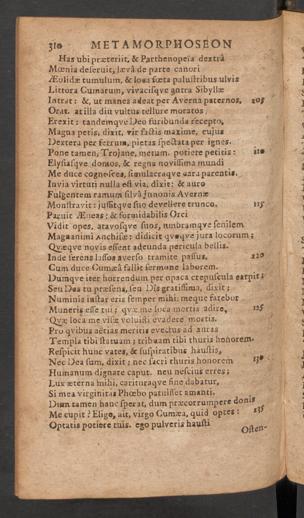 310 METAMORPHOSEON
Has ubi præteriit, & Parthenopeïa dextrâ
Mœnia deseruit, lævâ de parte canori
Æolidæ tumulum, & loca fœta palustribus ulvis
Littora Cumarum, vivacisque antra Sibyllæ
Intrat: &, ut manes adeat per Averna paternos, 105
Orat. at illa diu vultus tellure moratos
Erexit: tandemque Deo furibunda recepto,
Magna petis, dixit, vir factis maxime, cujus
Dextera per ferrum, pietas spectata per ignes.
Pone tamen, Trojane, metum. potiere petitis: 110
Elysiasque domos, & regna novissima mundi
Me duce cognosces, simulacraque cara parentis.
Invia virtuti nulla est via. dixit: & auro
Fulgentem ramum silvâ Junonis Avernæ
Monstravit: jussitque suo devellere trunco. 115
Paruit Æneas: & formidabilis Orci
Vidit opes, atavosque suos, umbramque senilem
Magnanimi Anchisæ: didicit quoque jura locorum;
Quæque novis essent adeunda pericula bellis.
Inde ferens lassos averso tramite passus, 120
Cum duce Cumæâ fallit sermone laborem.
Dumque iter horrendum per opaca crepuscula carpit;
Seu Dea tu præsens, seu Dîs gratissima, dixit;
Numinis instar eris semper mihi: meque fatebor
Muneris esse tui; quæ me loca mortis adire, 125
Quæ loca me visæ voluisti evadere mortis.
Pro quibus aërias meritis evectus ad auras
Templa tibi statuam; tribuam tibi thuris honorem.
Respicit hunc vates, & suspiratibus haustis,
Nec Dea sum, dixit: nec sacri thuris honorem 130
Humanum dignare caput. neu nescius erres;
Lux æterna mihi, carituraque fine dabatur,
Si mea virginitas Phœbo patuisset amanti.
Dum tamen hanc sperat, dum præcorrumpere donis
Me cupit? Elige, ait, virgo Cumæa, quid optes: 135
Optatis potiere tuis. ego pulveris hausti
Osten-